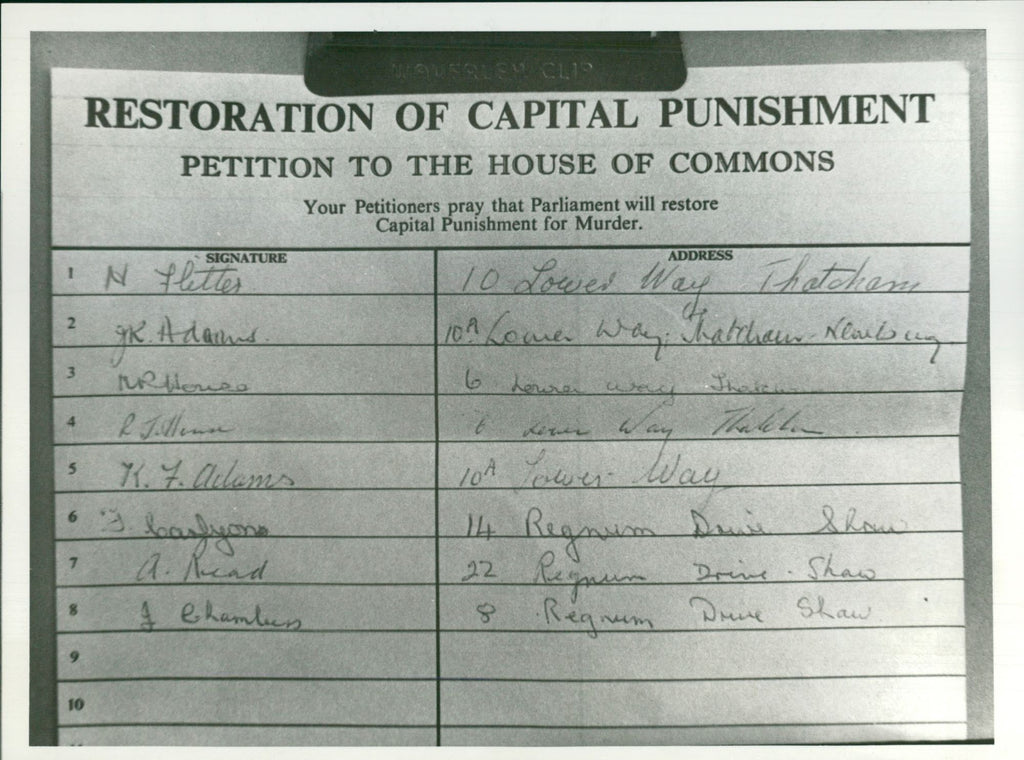 WAVERLEY CLIP
RESTORATION OF CAPITAL PUNISHMENT
PETITION TO THE HOUSE OF COMMONS
Your Petitioners pray that Parliament will restore
Capital Punishment for Murder.
SIGNATURE ADDRESS
1 N Flitter 10 Lower Way Thatcham
2 J.K. Adams. 10A Lower Way, Thatcham - Newbury.
3 6 Lower Way
4 R J. 6 Lower Way
5 K. F. Adams 10A Lower Way
6 14 Regnum Drive Shaw
7 A. Read 22 Regnum Drive - Shaw
8 J Chambers 8 Regnum Drive Shaw
9
10